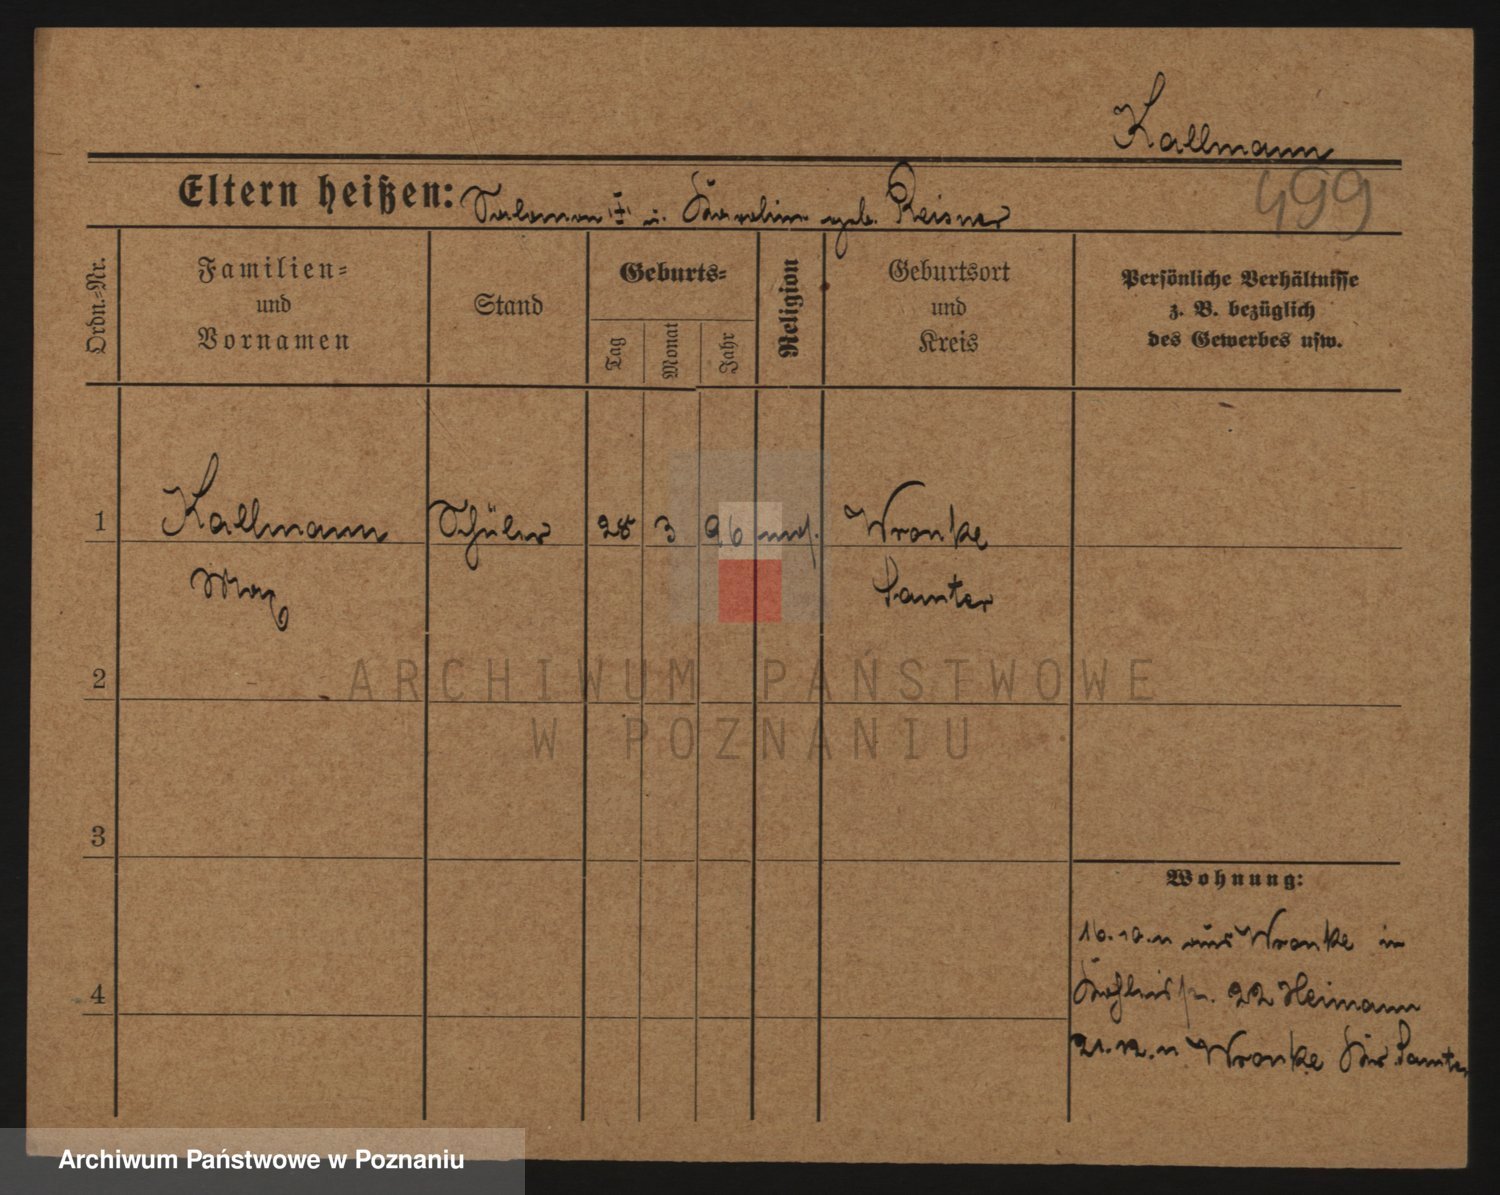 Kallmann
499
Eltern heißen: Salomon ‡ u. Karoline geb. Reisner
Ordn.-Nr.
Familien-
und
Vornamen
Stand
Geburts-
Tag
Monat
Jahr
Religion
Geburtsort
und
Kreis
Persönliche Verhältnisse
z. B. bezüglich
des Gewerbes usw.
1
Kallmann Schüler 28 3 96 mos. Wronke
Max Samter
2
ARCHIWUM PAŃSTWOWE
W POZNANIU
3
Wohnung:
16.10.11 aus Wronke in
22 Heimann
4
21.12.11 Wronke Kr. Samter
Archiwum Państwowe w Poznaniu